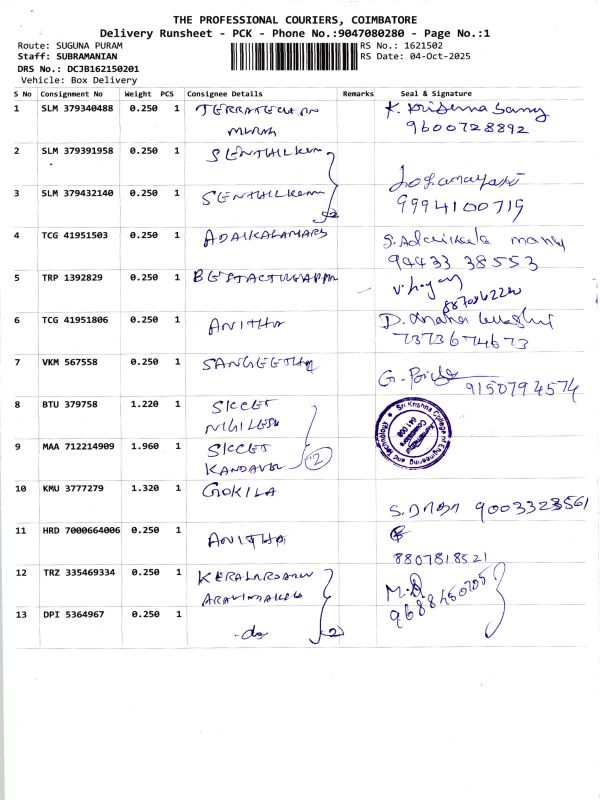 THE PROFESSIONAL COURIERS, COIMBATORE
Delivery Runsheet - PCK - Phone No.:9047080280 - Page No.:1
Route: SUGUNA PURAM RS No.: 1621502
Staff: SUBRAMANIAN RS Date: 04-Oct-2025
DRS No.: DCJB162150201
Vehicle: Box Delivery
S No Consignment No Weight PCS Consignee Details Remarks Seal & Signature
1 SLM 379340488 0.250 1
9600728892
2 SLM 379391958 0.250 1 SENTHILKUM
3 SLM 379432140 0.250 1 SENTHILKUM
2
9994100719
4 TCG 41951503 0.250 1 ADAIKALAMARY
94433 38553
5 TRP 1392829 0.250 1
6 TCG 41951806 0.250 1 ANITHA
7373674673
7 VKM 567558 0.250 1 SANGEETHA
9150794574
8 BTU 379758 1.220 1 SKCET
NIGILESH
Sri Krishna College of Engineering and Technology
Coimbatore
641 008
9 MAA 712214909 1.960 1 SKCET
KANDAVEL 2
10 KMU 3777279 1.320 1 GOKILA
9003323561
11 HRD 7000664006 0.250 1 ANITHA
8807818521
12 TRZ 335469334 0.250 1
13 DPI 5364967 0.250 1 -do 2